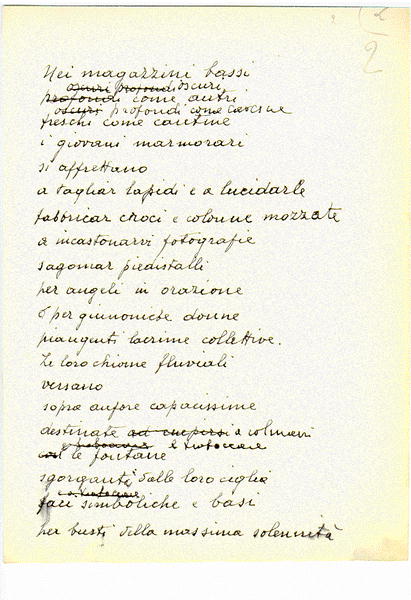 2
Nei magazzini bassi
oscuri profondi oscuri
profondi come antri
oscuri profondi come caverne
freschi come cantine
i giovani marmorari
si affrettano
a tagliar lapidi e a lucidarle
fabbricar croci e colonne mozzate
a incastonarvi fotografie
sagomar piedistalli
per angeli in orazione
e per giunoniche donne
piangenti lacrime collettive.
Le loro chiome fluviali
versano
sopra anfore capacissime
destinate ad empirsi a colmarsi
e traboccare
le fontane
sgorganti dalle loro ciglia
faci simboliche e basi
per busti della massima solennità